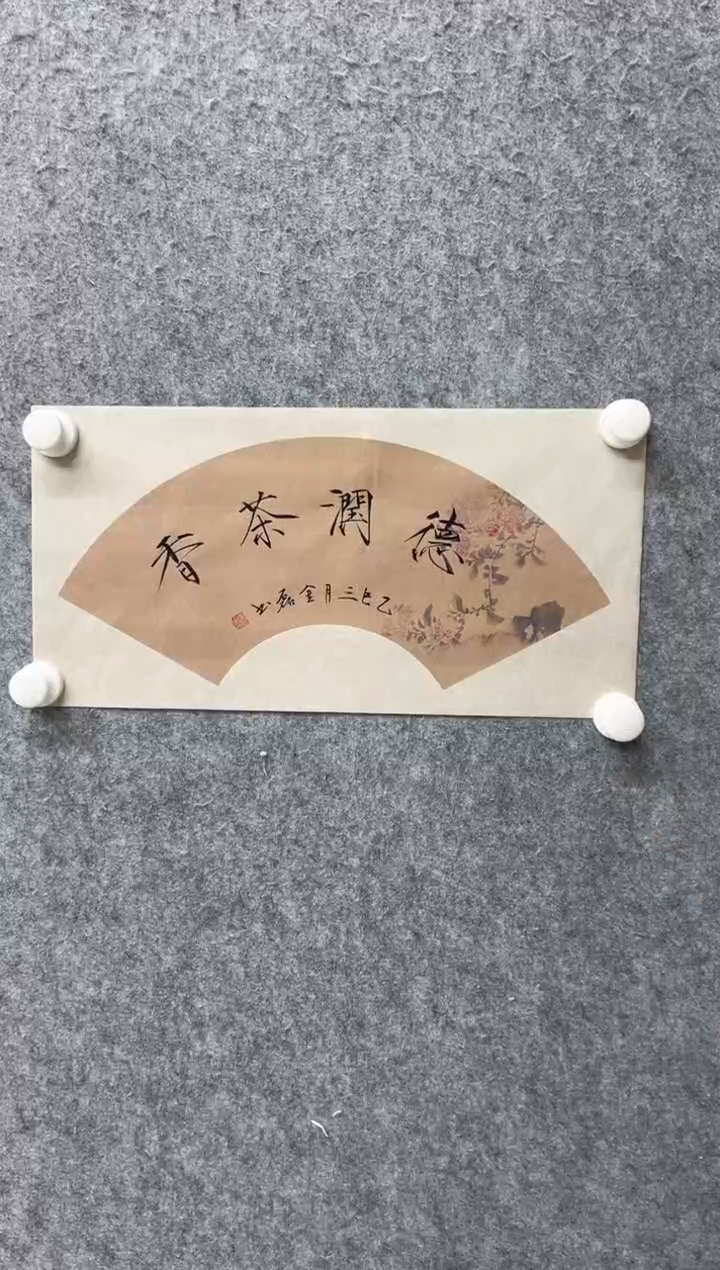 德潤茶香
乙巳三月金磊书